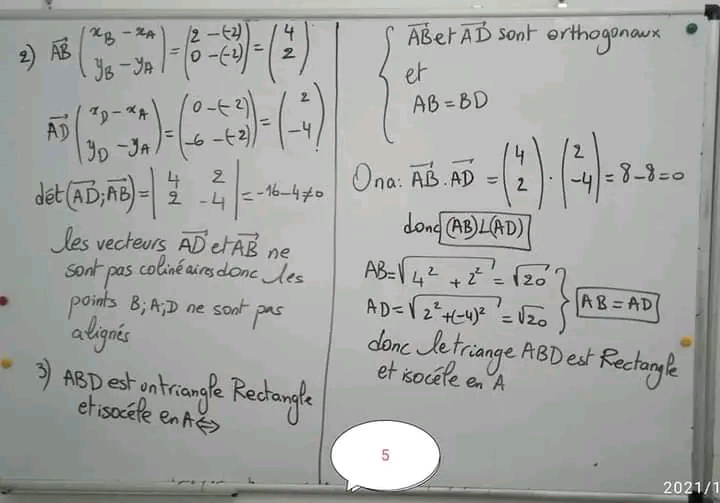 2) $\overrightarrow{AB}\begin{pmatrix} x_B - x_A \\ y_B - y_A \end{pmatrix} = \begin{pmatrix} 2-(-2) \\ 0-(-2) \end{pmatrix} = \begin{pmatrix} 4 \\ 2 \end{pmatrix}$
$\overrightarrow{AD}\begin{pmatrix} x_D - x_A \\ y_D - y_A \end{pmatrix} = \begin{pmatrix} 0-(-2) \\ -6-(-2) \end{pmatrix} = \begin{pmatrix} 2 \\ -4 \end{pmatrix}$
dét$(\overrightarrow{AD};\overrightarrow{AB}) = \begin{vmatrix} 4 & 2 \\ 2 & -4 \end{vmatrix} = -16-4 \neq 0$
les vecteurs $\overrightarrow{AD}$ et $\overrightarrow{AB}$ ne
sont pas colinéaires donc les
points B; A; D ne sont pas
alignés
3) ABD est un triangle Rectangle
et isocéle en A ⇔
{ $\overrightarrow{AB}$ et $\overrightarrow{AD}$ sont orthogonaux
et
AB = BD
On a: $\overrightarrow{AB}.\overrightarrow{AD} = \begin{pmatrix} 4 \\ 2 \end{pmatrix} . \begin{pmatrix} 2 \\ -4 \end{pmatrix} = 8-8=0$
donc (AB)⊥(AD)
$AB = \sqrt{4^2 + 2^2} = \sqrt{20}$
$AD = \sqrt{2^2 + (-4)^2} = \sqrt{20}$ } AB = AD
donc le triange ABD est Rectangle
et isocéle en A
5
2021/1